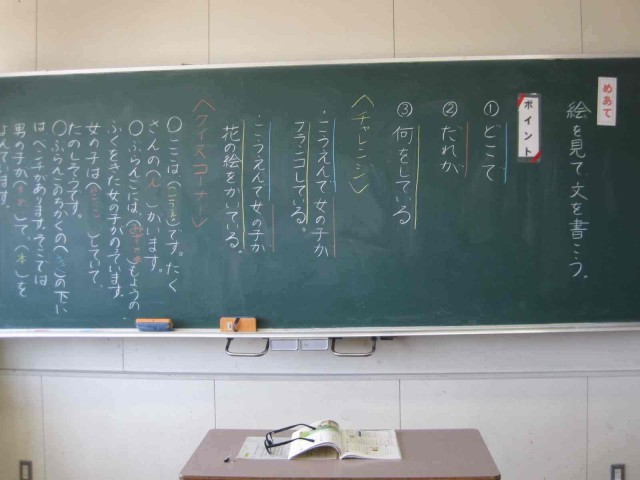 めあて
絵を見て文を書こう。
ポイント
①どこで
②だれが
③何をしている
〈チャレンジ〉
・こうえんで女の子が
ブランコしている。
・こうえんで女の子が
花の絵をかいている。
〈クイズコーナー〉
〇ここは(こうえん)です。たく
さんの(人)がいます。
〇ぶらんこには、もようの
ふくをきた女の子がのっています。
女の子は()していて、
たのしそうです。
〇ぶらんこのちかくの(き)の下に
はベンチがあります。そこでは
男の子が()して、(本)を
よんでいます。